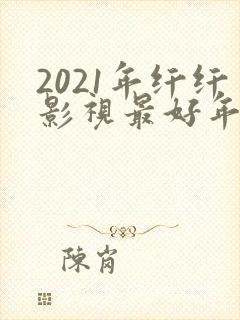 2021年纤纤
影視最好年
陳肖